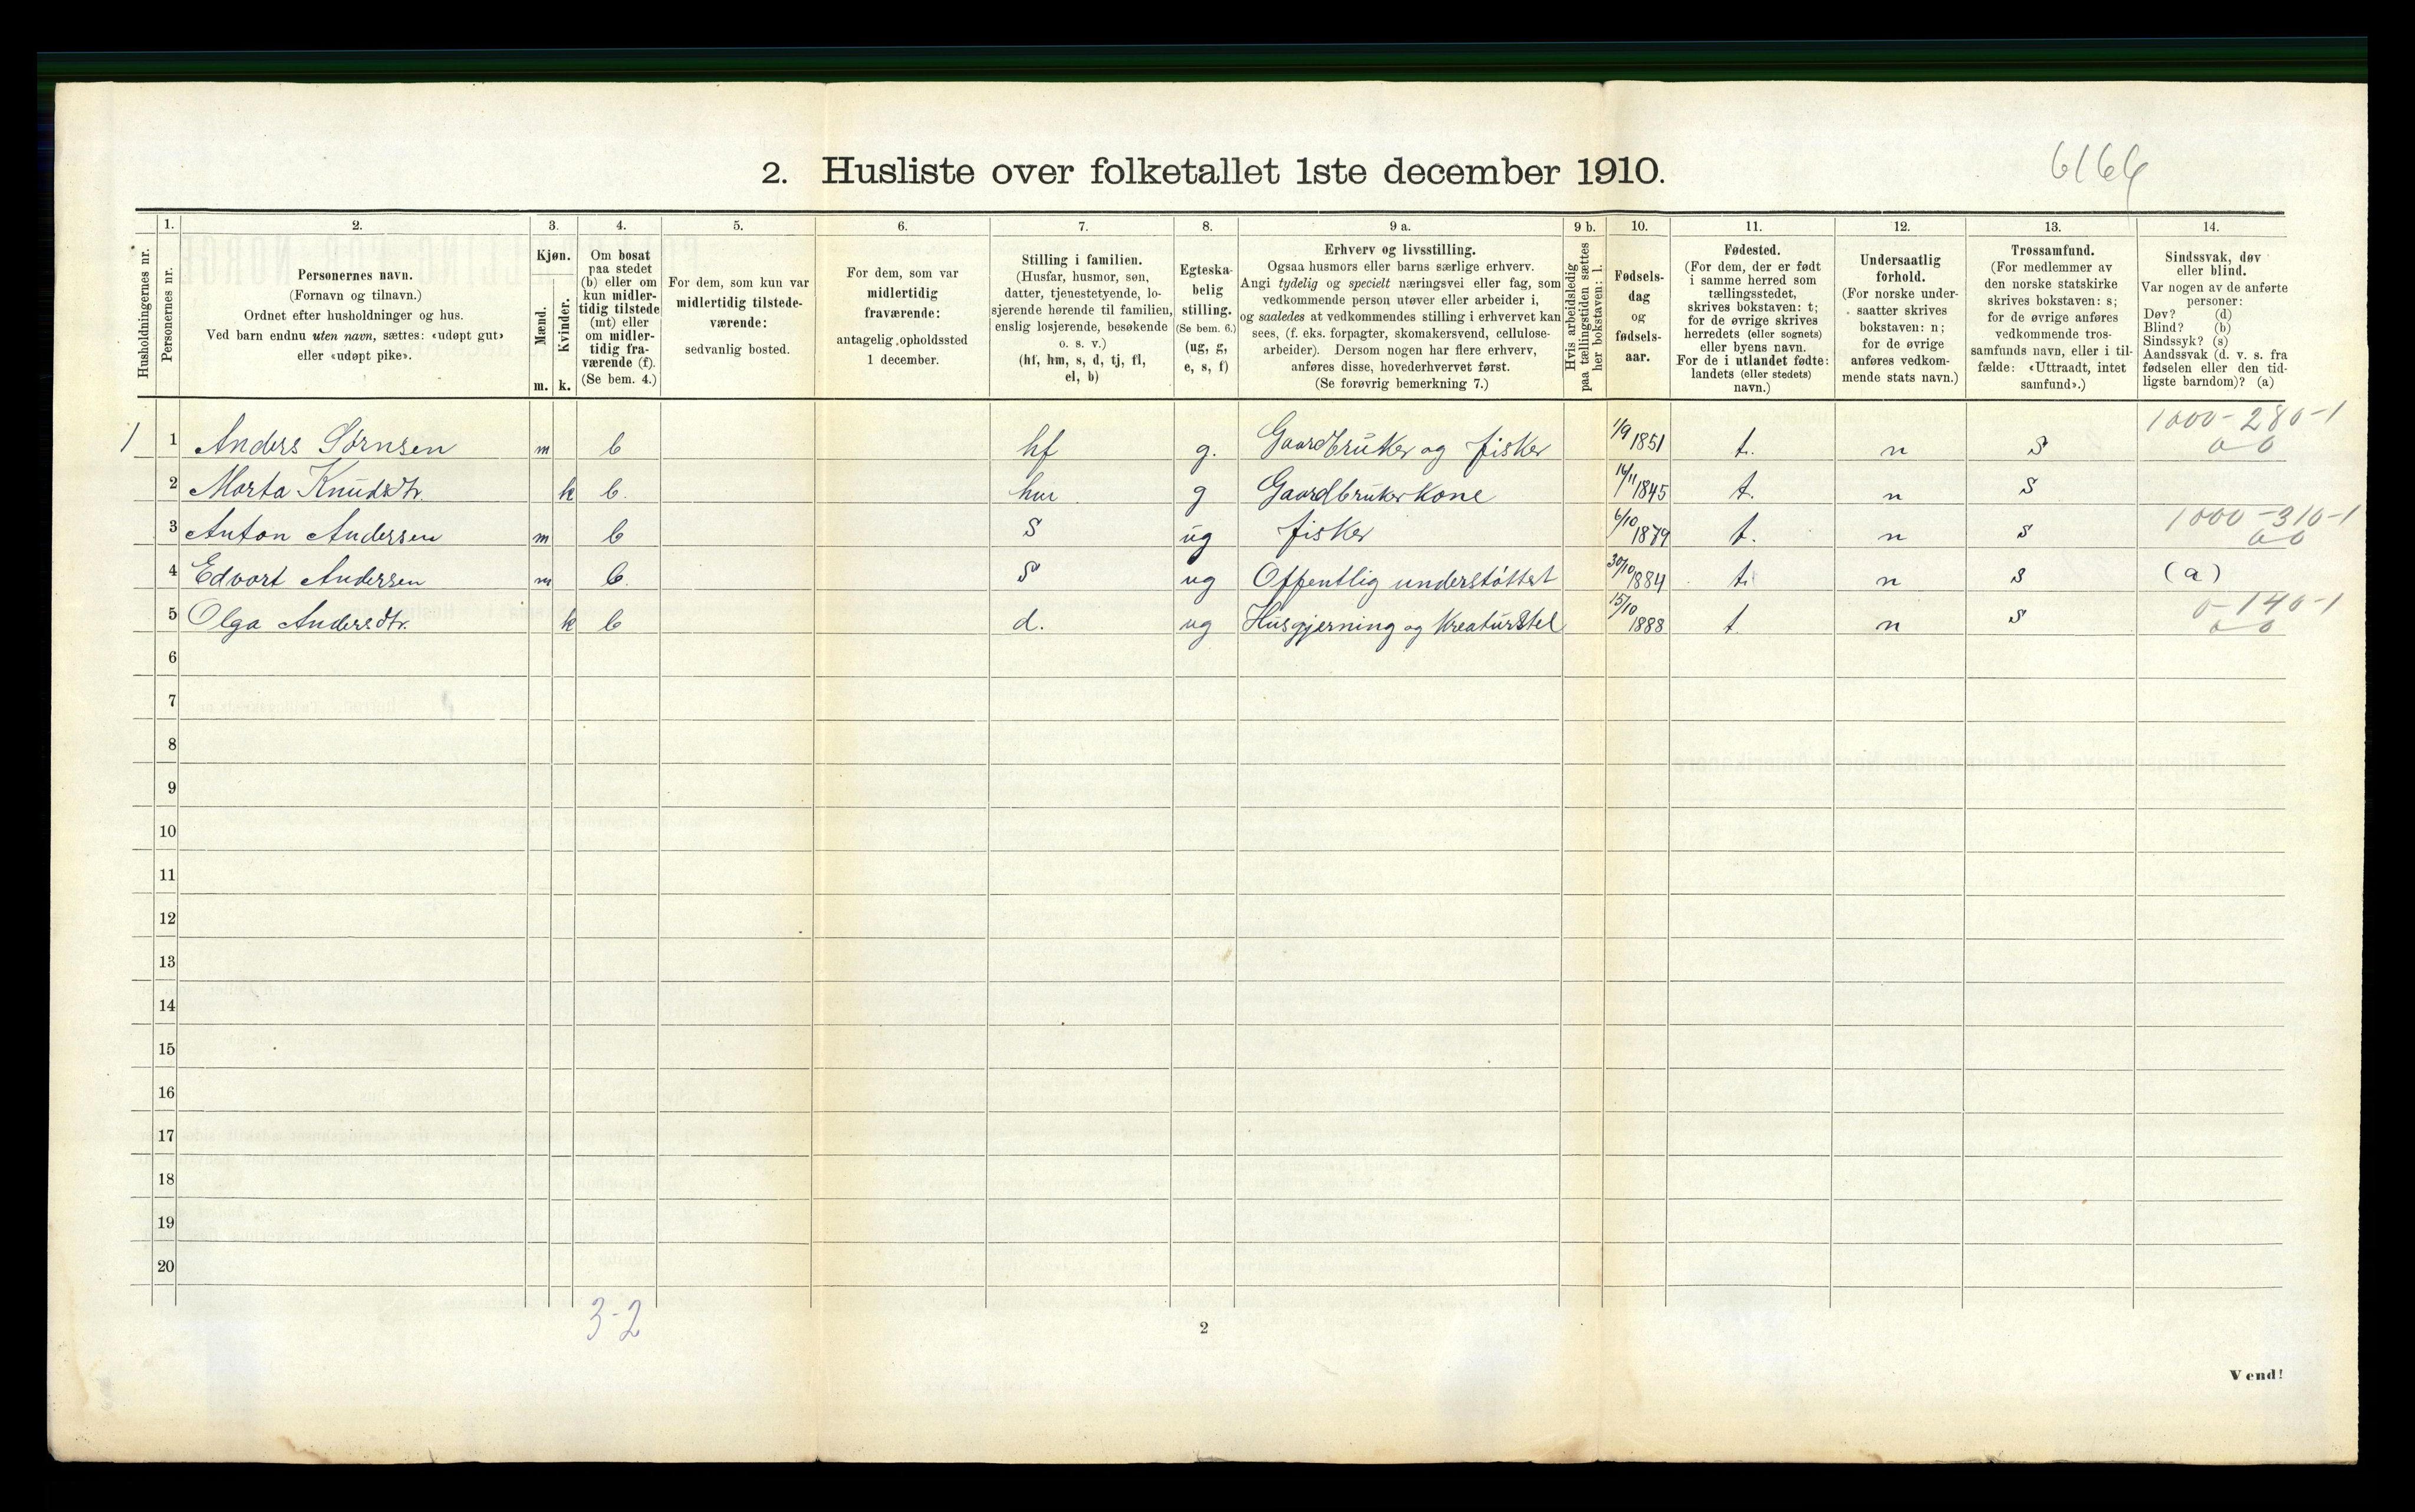 6166
2. Husliste over folketallet 1ste december 1910.
Husholdningernes nr.
1.
Personernes nr.
2.
Personernes navn.
(Fornavn og tilnavn.)
Ordnet efter husholdninger og hus.
Ved barn endnu uten navn, sættes: «udøpt gut»
eller «udøpt pike».
3.
Kjøn.
Mænd.
Kvinder.
m. k.
4.
Om bosat
paa stedet
(b) eller om
kun midler-
tidig tilstede
(mt) eller
om midler-
tidig fra-
værende (f).
(Se bem. 4.)
5.
For dem, som kun var
midlertidig tilstede-
værende:
sedvanlig bosted.
6.
For dem, som var
midlertidig
fraværende:
antagelig opholdssted
1 december.
7.
Stilling i familien.
(Husfar, husmor, søn,
datter, tjenestetyende, lo-
sjerende hørende til familien,
enslig losjerende, besøkende
o. s. v.)
(hf, hm, s, d, tj, fl,
el, b)
8.
Egteska-
belig
stilling.
(Se bem. 6.)
(ug, g,
e, s, f)
9 a.
Erhverv og livsstilling.
Ogsaa husmors eller barns særlige erhverv.
Angi tydelig og specielt næringsvei eller fag, som
vedkommende person utøver eller arbeider i,
og saaledes at vedkommendes stilling i erhvervet kan
sees, (f. eks. forpagter, skomakersvend, cellulose-
arbeider). Dersom nogen har flere erhverv,
anføres disse, hovederhvervet først.
(Se forøvrig bemerkning 7.)
9 b.
Hvis arbeidsledig
paa tællingstiden sættes
her bokstaven: l.
10.
Fødsels-
dag
og
fødsels-
aar.
11.
Fødested.
(For dem, der er født
i samme herred som
tællingsstedet,
skrives bokstaven: t;
for de øvrige skrives
herredets (eller sognets)
eller byens navn.
For de i utlandet fødte:
landets (eller stedets)
navn.)
12.
Undersaatlig
forhold.
(For norske under-
saatter skrives
bokstaven: n;
for de øvrige
anføres vedkom-
mende stats navn.)
13.
Trossamfund.
(For medlemmer av
den norske statskirke
skrives bokstaven: s;
for de øvrige anføres
vedkommende tros-
samfunds navn, eller i til-
fælde: «Uttraadt, intet
samfund».)
14.
Sindssvak, døv
eller blind.
Var nogen av de anførte
personer:
Døv? (d)
Blind? (b)
Sindssyk? (s)
Aandssvak (d. v. s. fra
fødselen eller den tid-
ligste barndom)? (a)
1000-280-1
0 0
1 1 Anders Sørnsen m b hf g. Gaardbruker og fisker 1/9 1851 t. n S
2 Marta Knudsdtr. k b. hm g Gaardbrukerkone 14/11 1845 t. n S
1000-310-1
0 0
3 Anton Andersen m b S ug fisker 6/10 1879 t. n S
4 Edvart Andersen m b. S ug Offentlig understøttet 30/10 1884 t. n S (a)
0-140-1
0 0
5 Olga Andersdtr. k b d. ug Husgjerning og Kreaturstel 15/10 1888 t. n S
6
7
8
9
10
11
12
13
14
15
16
17
18
19
20
3-2
2
Vend!